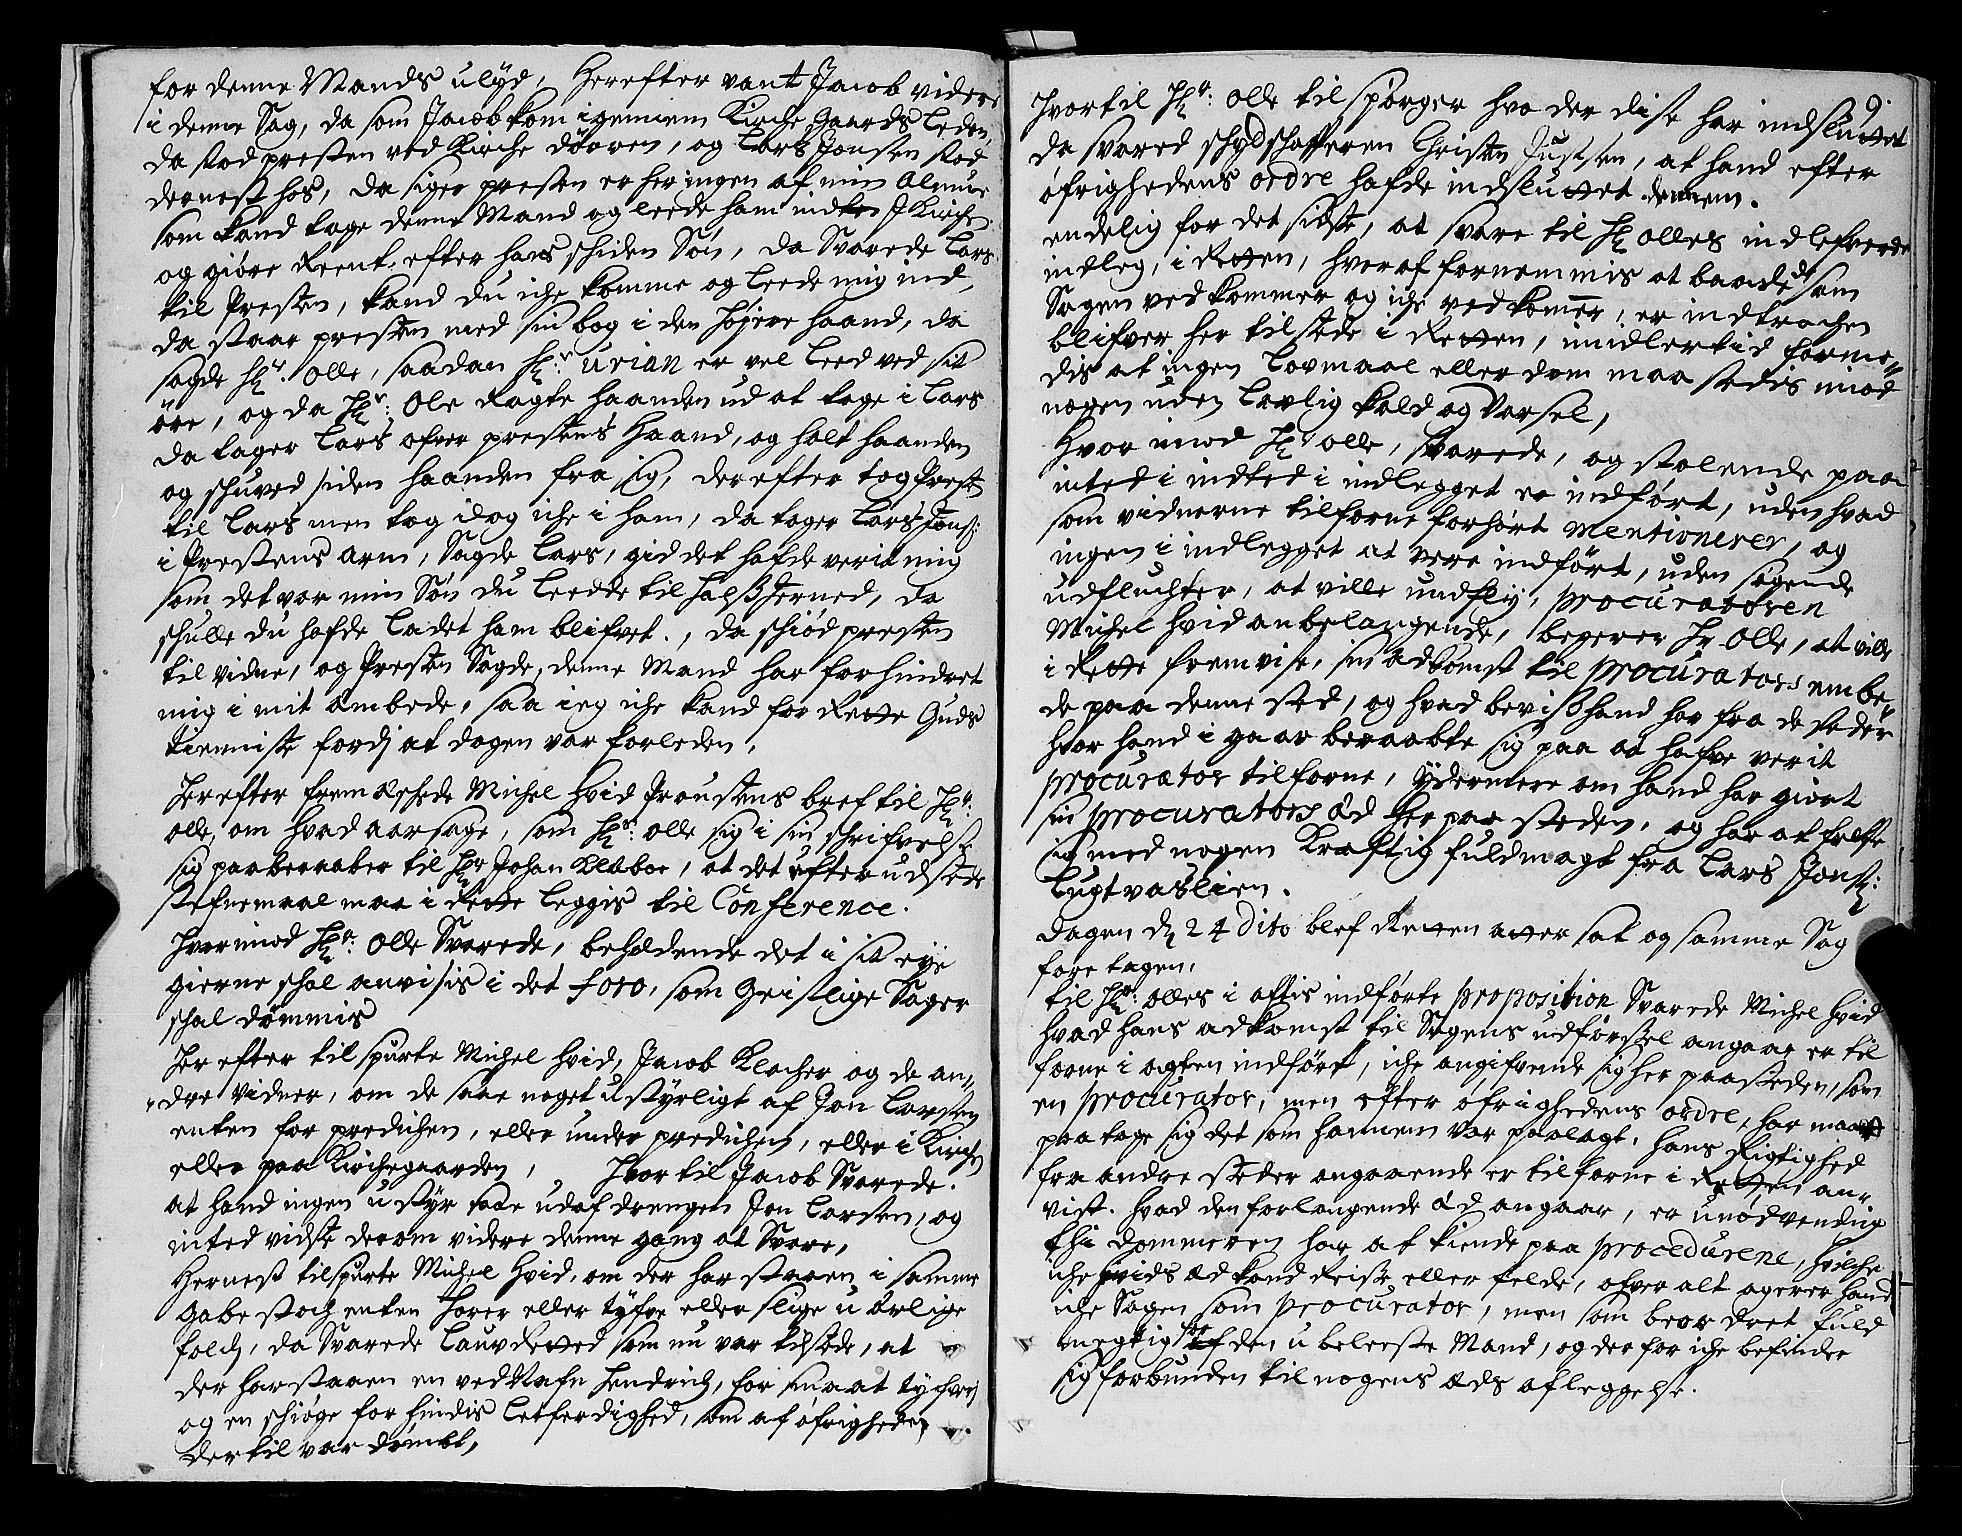 for denne Mands ulyd, Herefter vant Jacob videre
i denne Sag, da som Jacob kom igenniem Kirche Gaards Leden,
da stod presten ved Kirche döören, og Lars Jonsen stod
dernest hos, da siger presten er her ingen af min Almue
som kand tage denne Mand og leede ham ind i Kirche
og giöre Reent efter hans schiden Sön, da Svarede Lars
til Presten, kand du iche komme og leede mig ind,
da staar presten med sin bog i den höjere haand, da
sagde Hr. Olle, saadan Hr. Urian er vel Leed ved sit
öre, og da Hr: Ole Ragte haanden ud at tage i Lars
da tager Lars ofver prestens Haand, og holt haanden
og schured siden haanden fra sig, derefter tog Prest
til Lars men tog dog iche i ham, da tager Lars Jons:
i Prestens arm, Sagde Lars, gid det hafde verit mig
som det var min Sön du Leedde til Halsz Jerned, da
schulle du hafde Ladet ham blifvet., da schiöd presten
til vidne, og Presten Sagde, denne Mand har forhindret
mig i mit Ambede, saa ieg iche kand forRette Guds
tienniste fordj at dagen var forleden,
Herefter fremæschede Michel Hvid Proustens bref til Hr:
Olle, om hvad aarsage, som Hr: Olle sig i sin schrifvelse
sig paaberaaber til Hr Johan Klæboe, at det efter udstede
stefnemaal maa i Rette Leggis til Conference.
Hvorimod Hr: Olle Svarede, beholdende det i sit eye
gierne schal anvisis i det foro, som Geistlige Sager
schal dömmis
Herefter tilspurte Michel Hvid, Jacob Klocher og de an„
„dre vidner, om de saae noget ustyrligt af Jon Larsen
enten for predichen, eller under predichen, eller i Kirchen
eller paa Kirchegaarden, Hvortil Jacob Svarede.
at hand ingen ustyr saae udaf drengen Jon Larsen, og
inted vidste derom videre denne gang at Svare,
Hernest tilspurte Michel Hvid, om der har staaen i samme
Gabestoch enten Horer eller tyfve eller slige uærlige
folch, da Svarede LauvRetted som nu var tilstede, at
der har staaen en ved Nafn Hendrich, for smaat tycherj
og en schiöge for hindis Letferdighed, som af öfrigheden
dertil var dömbt,
9.
Hvortil Hr: Olle tilspörger hvo der dise har indsluttet
da svared schydschafferen Christen Justsen, at hand efter
öfrighedens ordre hafde indsluttet dennem.
endelig for det sidste, at svare til Hr Olles indlefverede
indleg, i Retten, hveraf fornemmis at baade de som
Sagen vedkommer og iche vedkomer, er indtrachen
blifver her tilstede i Retten, imidlertid forme„
dis at ingen Lovmaal eller dom maa stedis imod
nogen uden Lovlig kald og Varsel,
Hvorimod Hr Olle, svarede, og stolende paa
inted i indted i indlegget er indfört, uden hvad
som vidnerne tilforne forhört mentionerer, og
ingen i indlegget at vere indfört, uden sögende
udfluchter, at ville undfly, procuratoren
Michel Hvid anbelangende, begerer Hr Olle, at ville
i Rette fremvise, sin adkomst til procurators embe„
de paa denne sted, og hvad bevisz hand har fra de steder
hvor hand i gaar beraabte sig paa at hafve verit
procurator tilforne, ydermere om hand har giort
sin procurators Æd her paa steden, og har at træffe
sig med nogen Kraftig fuldmagt fra Lars Jons:
Lugtvaslien.
Dagen d 24 Dito blef Retten atter sat og samme Sag
foretagen,
til Hr: Olles i aftis indförte proposition Svarede Michel Hvid
hvad hans adkomst til Sagens udförssel angaar er til
forne i acten indfört, iche angifvende sig her paa steden, som
en procurator, men efter öfrighedens ordre, har maatt
paatage sig det som hannem var paalagt, hans Rigtighed
fra andre steder angaaende er tilforne i Retten an„
vist. hvad den forlangende Æd angaar, er unödvendig
thi dommeren har at kiende paa procedurene, hvilche
iche Hvids Æd kand Reise eller felde, ofver alt agerer hand
iche Sagen som procurator, men som beordret fuld
megtig for den ubeleeste Mand, og derfor iche befinder
sig forbunden til nogens Æds afleggelse.